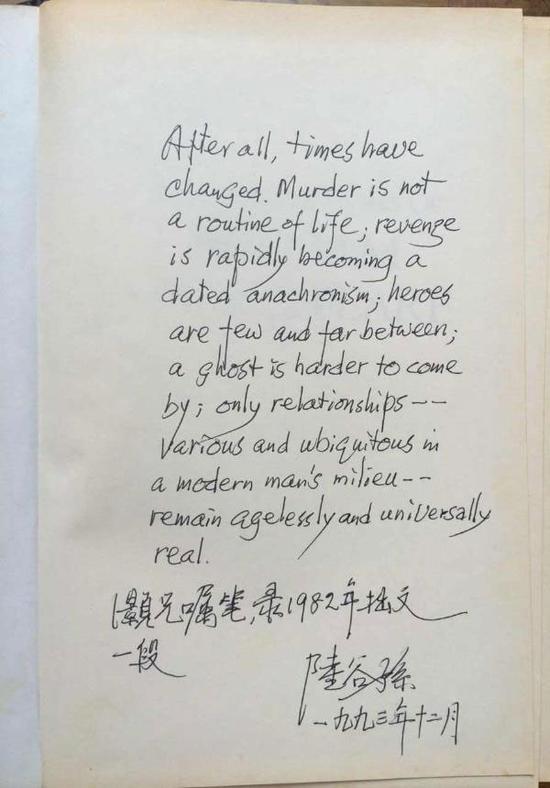 After all, times have
changed. Murder is not
a routine of life; revenge
is rapidly becoming a
dated anachronism; heroes
are few and far between;
a ghost is harder to come
by; only relationships--
various and ubiquitous in
a modern man's milieu--
remain agelessly and universally
real.
兄嘱笔,录1982年拙文
一段
陆谷孙
一九九三年十二月